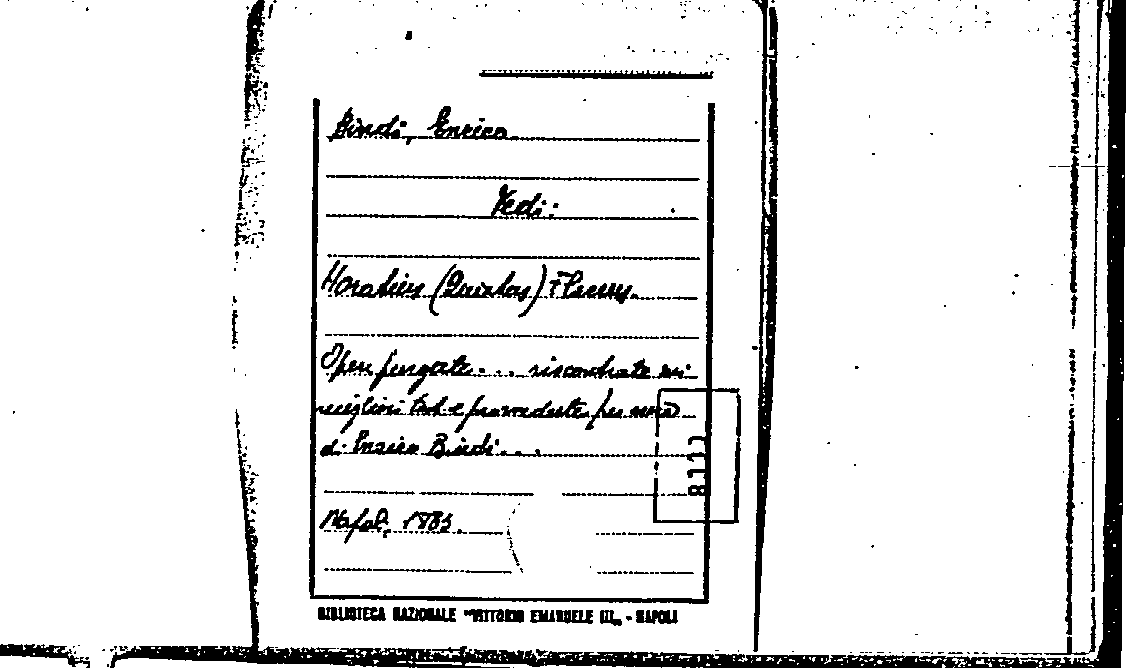 Bindi, Enrico
Vedi:
Horatius (Quintus) Flaccus.
Opere purgate... riscontrate sui
migliori testi e provvedute per cura
di Enrico Bindi...
Napoli, 1883.
8111
BIBLIOTECA NAZIONALE "VITTORIO EMANUELE III„ - NAPOLI